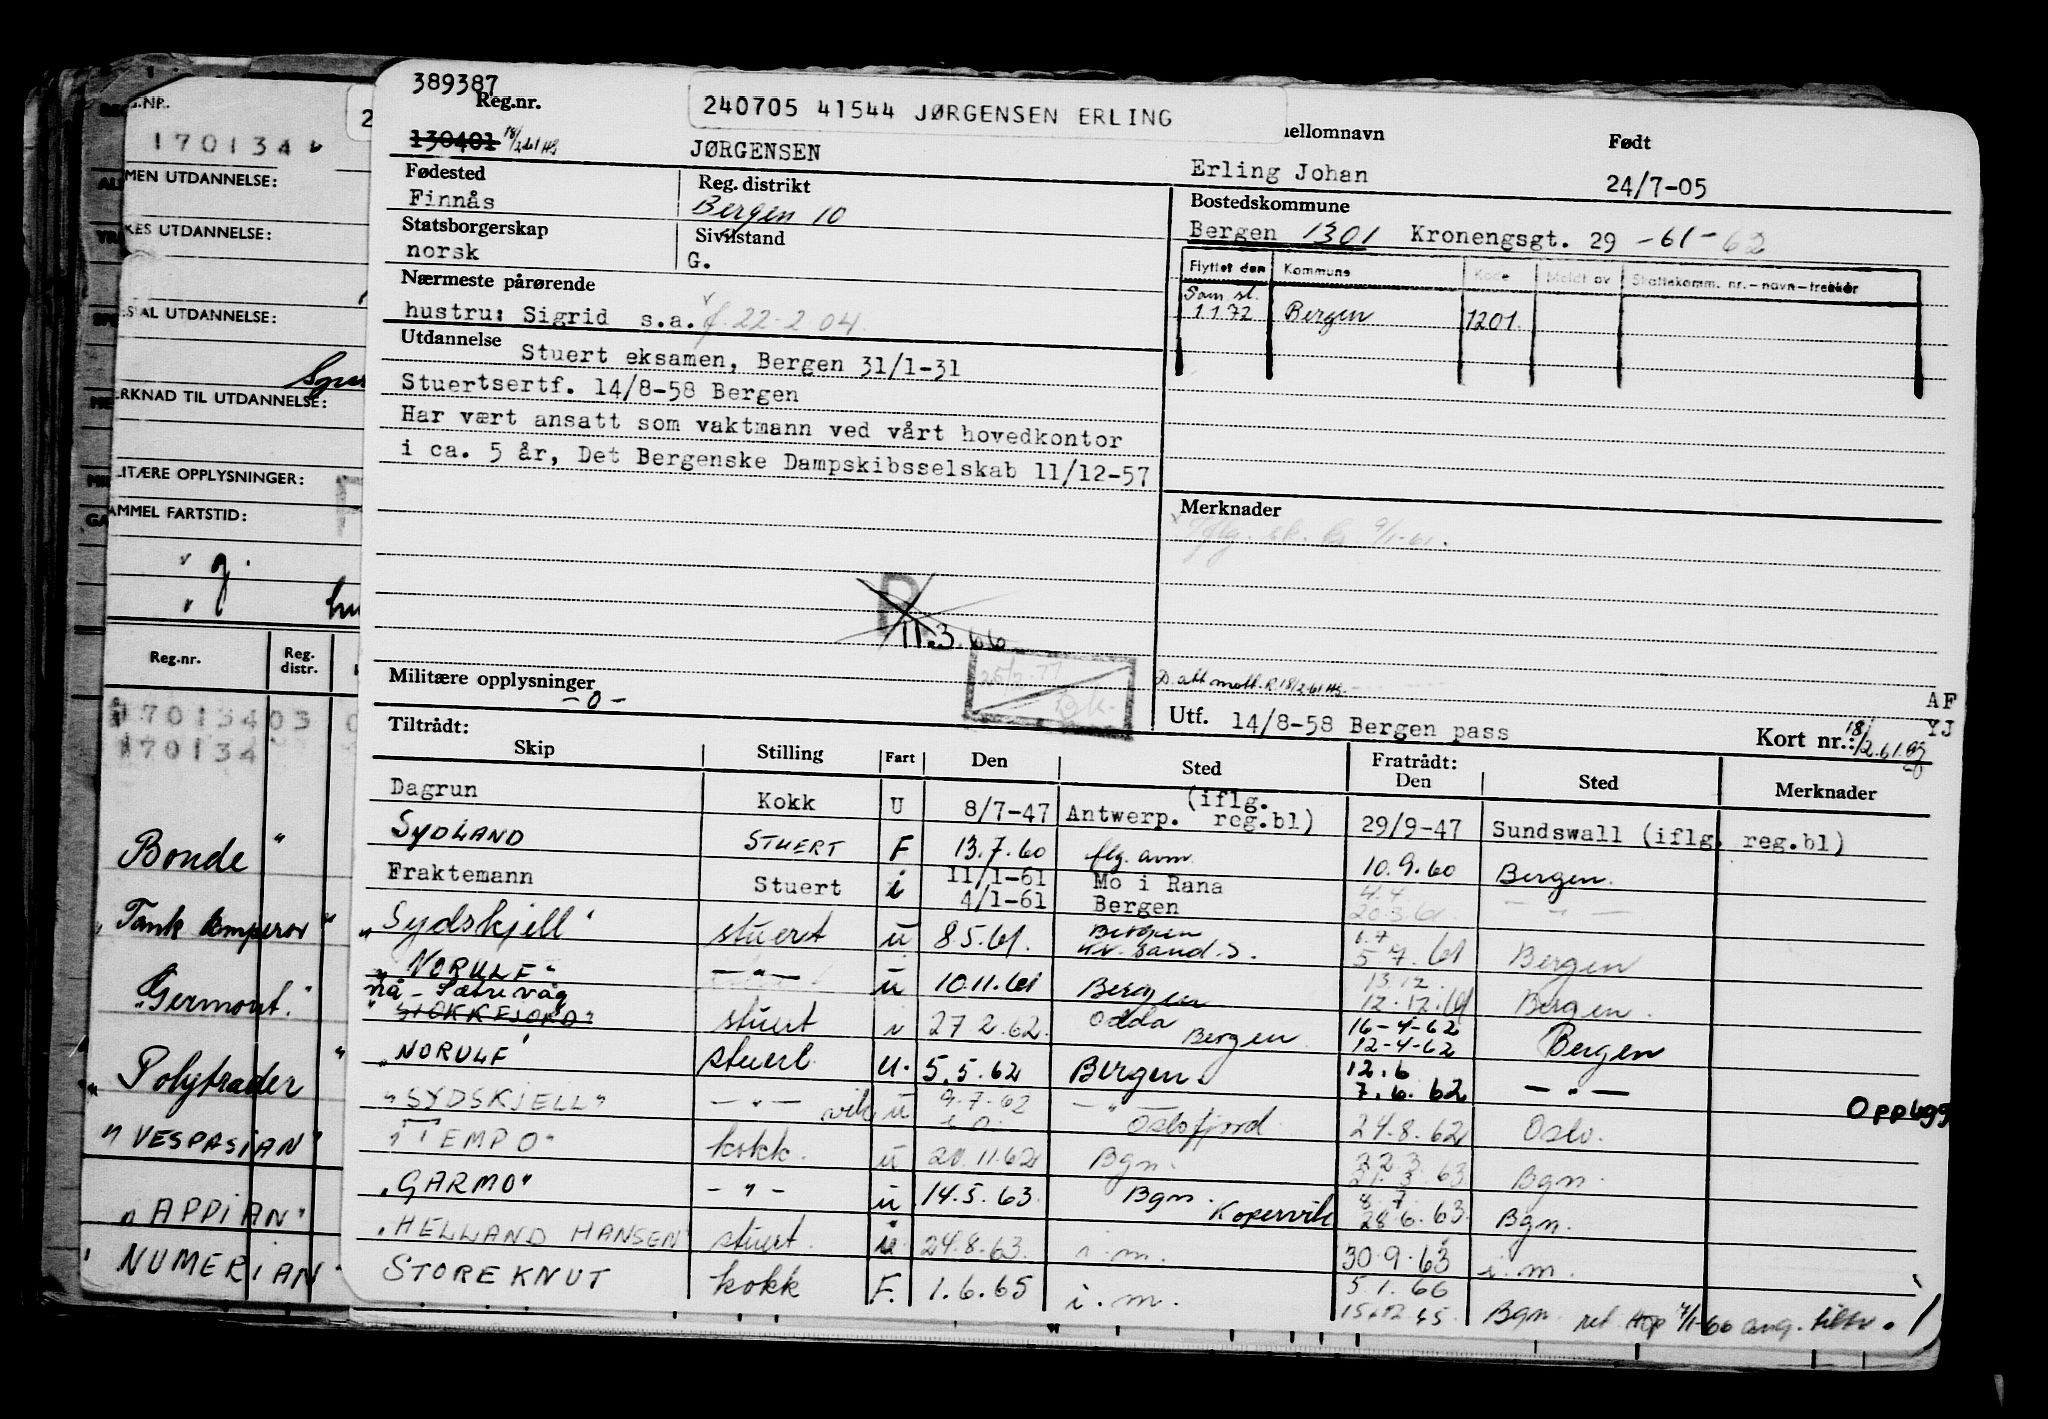 389387
Reg.nr.
240705 41544 JØRGENSEN ERLING
130401 18/2.61 HB
JØRGENSEN
ellomnavn
Født
Erling Johan
24/7-05
Fødested
Finnås
Reg. distrikt
Bergen 10
Bostedskommune
Bergen 1301 Kronengsgt. 29 -61-62
Statsborgerskap
norsk
Sivilstand
G.
Flyttet den Kommune Kode Meldt av Skattekomm. nr.-navn-trekkår
Sam.sl.
1 1 72 Bergen 1201.
Nærmeste pårørende
hustru: Sigrid s.a. f 22-2 04.
Utdannelse
Stuert eksamen, Bergen 31/1-31
Stuertsertf. 14/8-58 Bergen
Har vært ansatt som vaktmann ved vårt hovedkontor
i ca. 5 år, Det Bergenske Dampskibsselskab 11/12-57
Merknader
9/1-61.
R
11.3.66
25/2-77
Militære opplysninger
-0-
D. att mott. R. 18/2 61 HB.
Utf. 14/8-58 Bergen pass
AF
YJ
Kort nr.: 18/2.61
Tiltrådt:
Skip Stilling Fart Den Sted Fratrådt: Den Sted Merknader
Dagrun Kokk U 8/7-47 Antwerp. (iflg. reg.bl) 29/9-47 Sundswall (iflg. reg.bl)
SYDLAND STUERT F 13.7.60 flg. avm. 10.9.60 Bergen.
Fraktemann Stuert i 11/1-61 Mo i Rana 4.4
4/1-61 Bergen 20.3.61 — " —
"Sydskjell" stuert u 8.5.61. Bergen 1.7
Kr. sand. S. 5 7.61 Bergen
"NORULF" — " — u 10.11.61 Bergen 13.12.
12.12.61 Bergen.
nå - Sætrevåg
"STOKKFJORD" stuert i 27 2.62. Odda Bergen 16-4-62
12-4-62 Bergen
"NORULF" stuert u. 5.5.62 Bergen. 12.6
7.6.62 — " —
"SYDSKJELL" — " — u 9.7.62 — " — Oslofjord 24.8.62 Oslo. Opplagg
"TEMPO" kokk. u 20.11.62 Bgn. 22.3.
21.3.63 Bgn.
"GARMO" - " - u 14.5.63. Bgn. Kopervik 8.7.
28.6.63. Bgn.
"HELLAND HANSEN" stuert. i 24.8.63. i.m. 30.9.63 i.m.
STOREKNUT kokk F. 1.6.65 i.m. 5.1.66
15.12 65 Bgn.
G.NR.
170134
MEN UTDANNELSE:
KES UTDANNELSE:
SIAL UTDANNELSE:
ERKNAD TIL UTDANNELSE:
LITÆRE OPPLYSNINGER:
AMMEL FARTSTID:
Reg.nr. Reg. distr.
17013403
170134
Bonde "
"Tank Emperor"
"Germont."
"Polytrader"
"VESPASIAN"
"APPIAN"
"NUMERIAN"